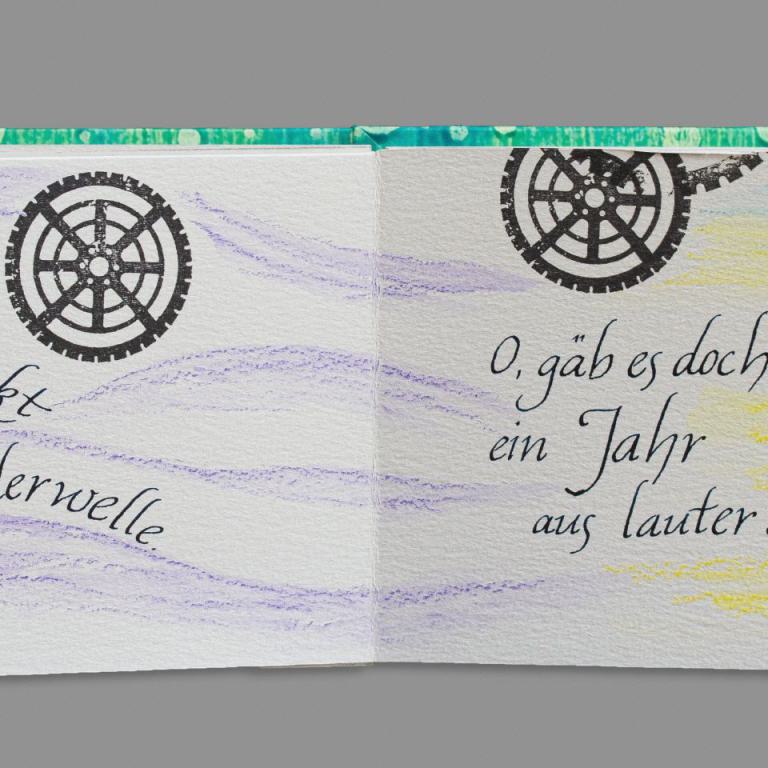 kt
derwelle.
O, gäb es doch
ein Jahr
aus lauter